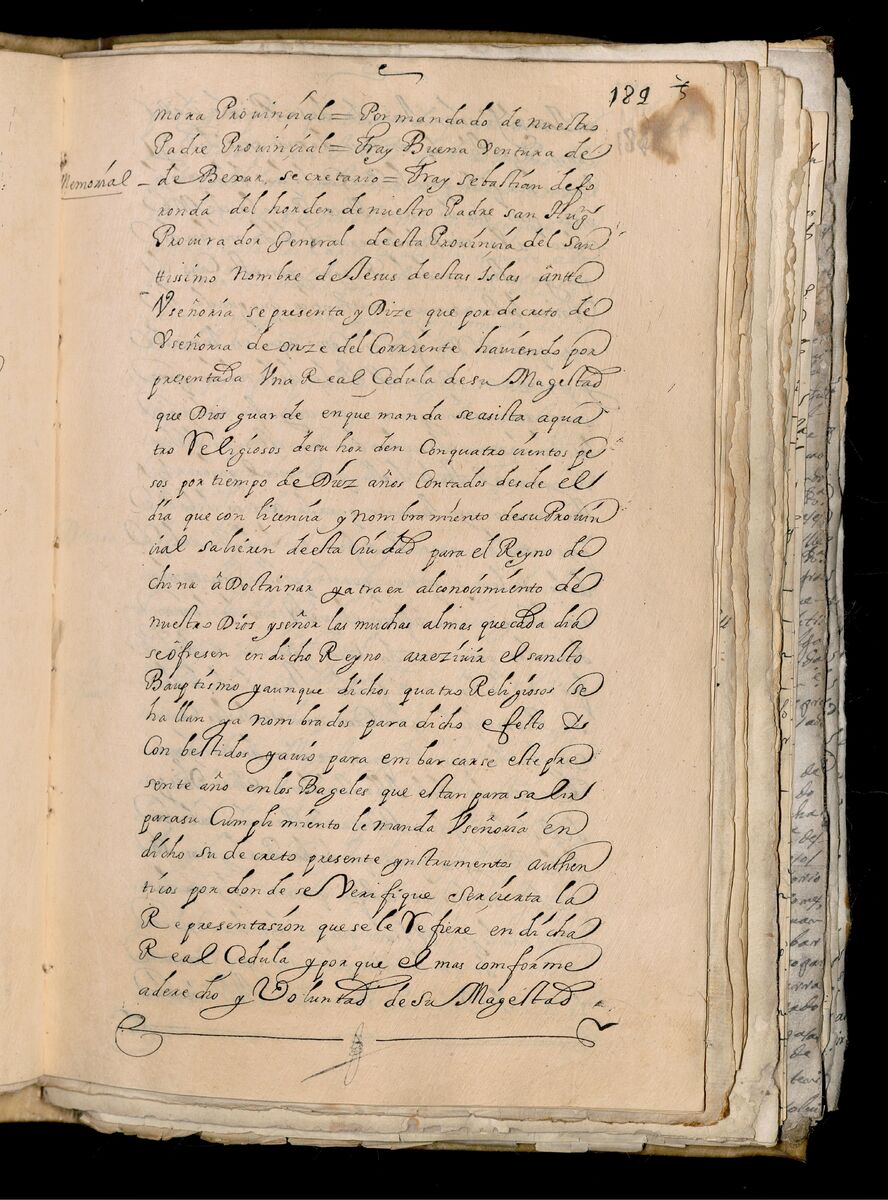 189
mora Provinçial = Por mandado de nuestro
Padre Provinçial = Fray Buena Ventura de
Memorial – de Bexar secretario = Fray sebastian de fo
ronda del horden de nuestro Padre san Aug.
Procurador General de esta Provinçia del San
ttissimo Nombre de Jesus de estas Islas antte
Vseñoria se presenta y Dize que por decreto de
Vseñoria de onze del Corriente haviendo por
presentada Vna Real Cedula de su Magestad
que Dios guarde en que manda se asista a qua
tro Religiosos de su horden Con quatro çientos pe
sos por tiempo de Diez años Contados desde el
dia que con liçençia y nombramiento de su Provin
çial salieren de esta Çiudad para el Reyno de
china â Doctrinar y atraer al conoçimiento de
nuestro Dios y señor las muchas almas que cada dia
se ôfresen en dicho Reyno a rrezivir el sancto
Bauptismo y aunque dichos quatro Religiosos se
hallan ya nombrados para dicho efecto
Con bestidos y avio para embarcarse este pre
sente año en los Bageles que estan para salir
para su Cumplimiento le manda Vseñoria en
dicho su decreto presente ynstrumentos authen
ticos por donde se Verifique ser çierta la
Representasion que se le Refiere en dicha
Real Cedula y por que el mas comforme
a derecho y Voluntad de su Magestad